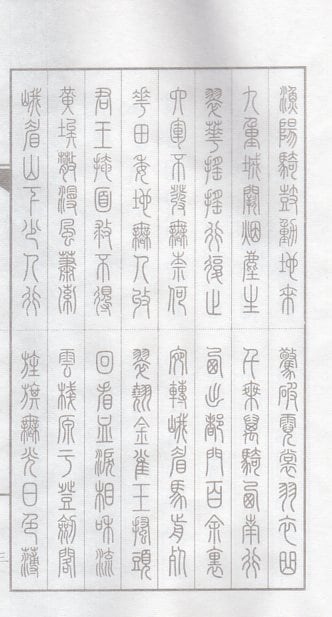 漁陽鼙鼓動地來　驚破霓裳羽衣曲
九重城闕烟塵生　千乘萬騎西南行
翠華搖搖行復止　西出都門百余裏
六軍不發無奈何　宛轉峨眉馬前死
花田委地無人收　翠翹金雀玉搔頭
君王掩面救不得　回看血淚相和流
黃埃散漫風蕭索　雲棧縈紆登劍閣
峨眉山下少人行　旌旗無光日色薄